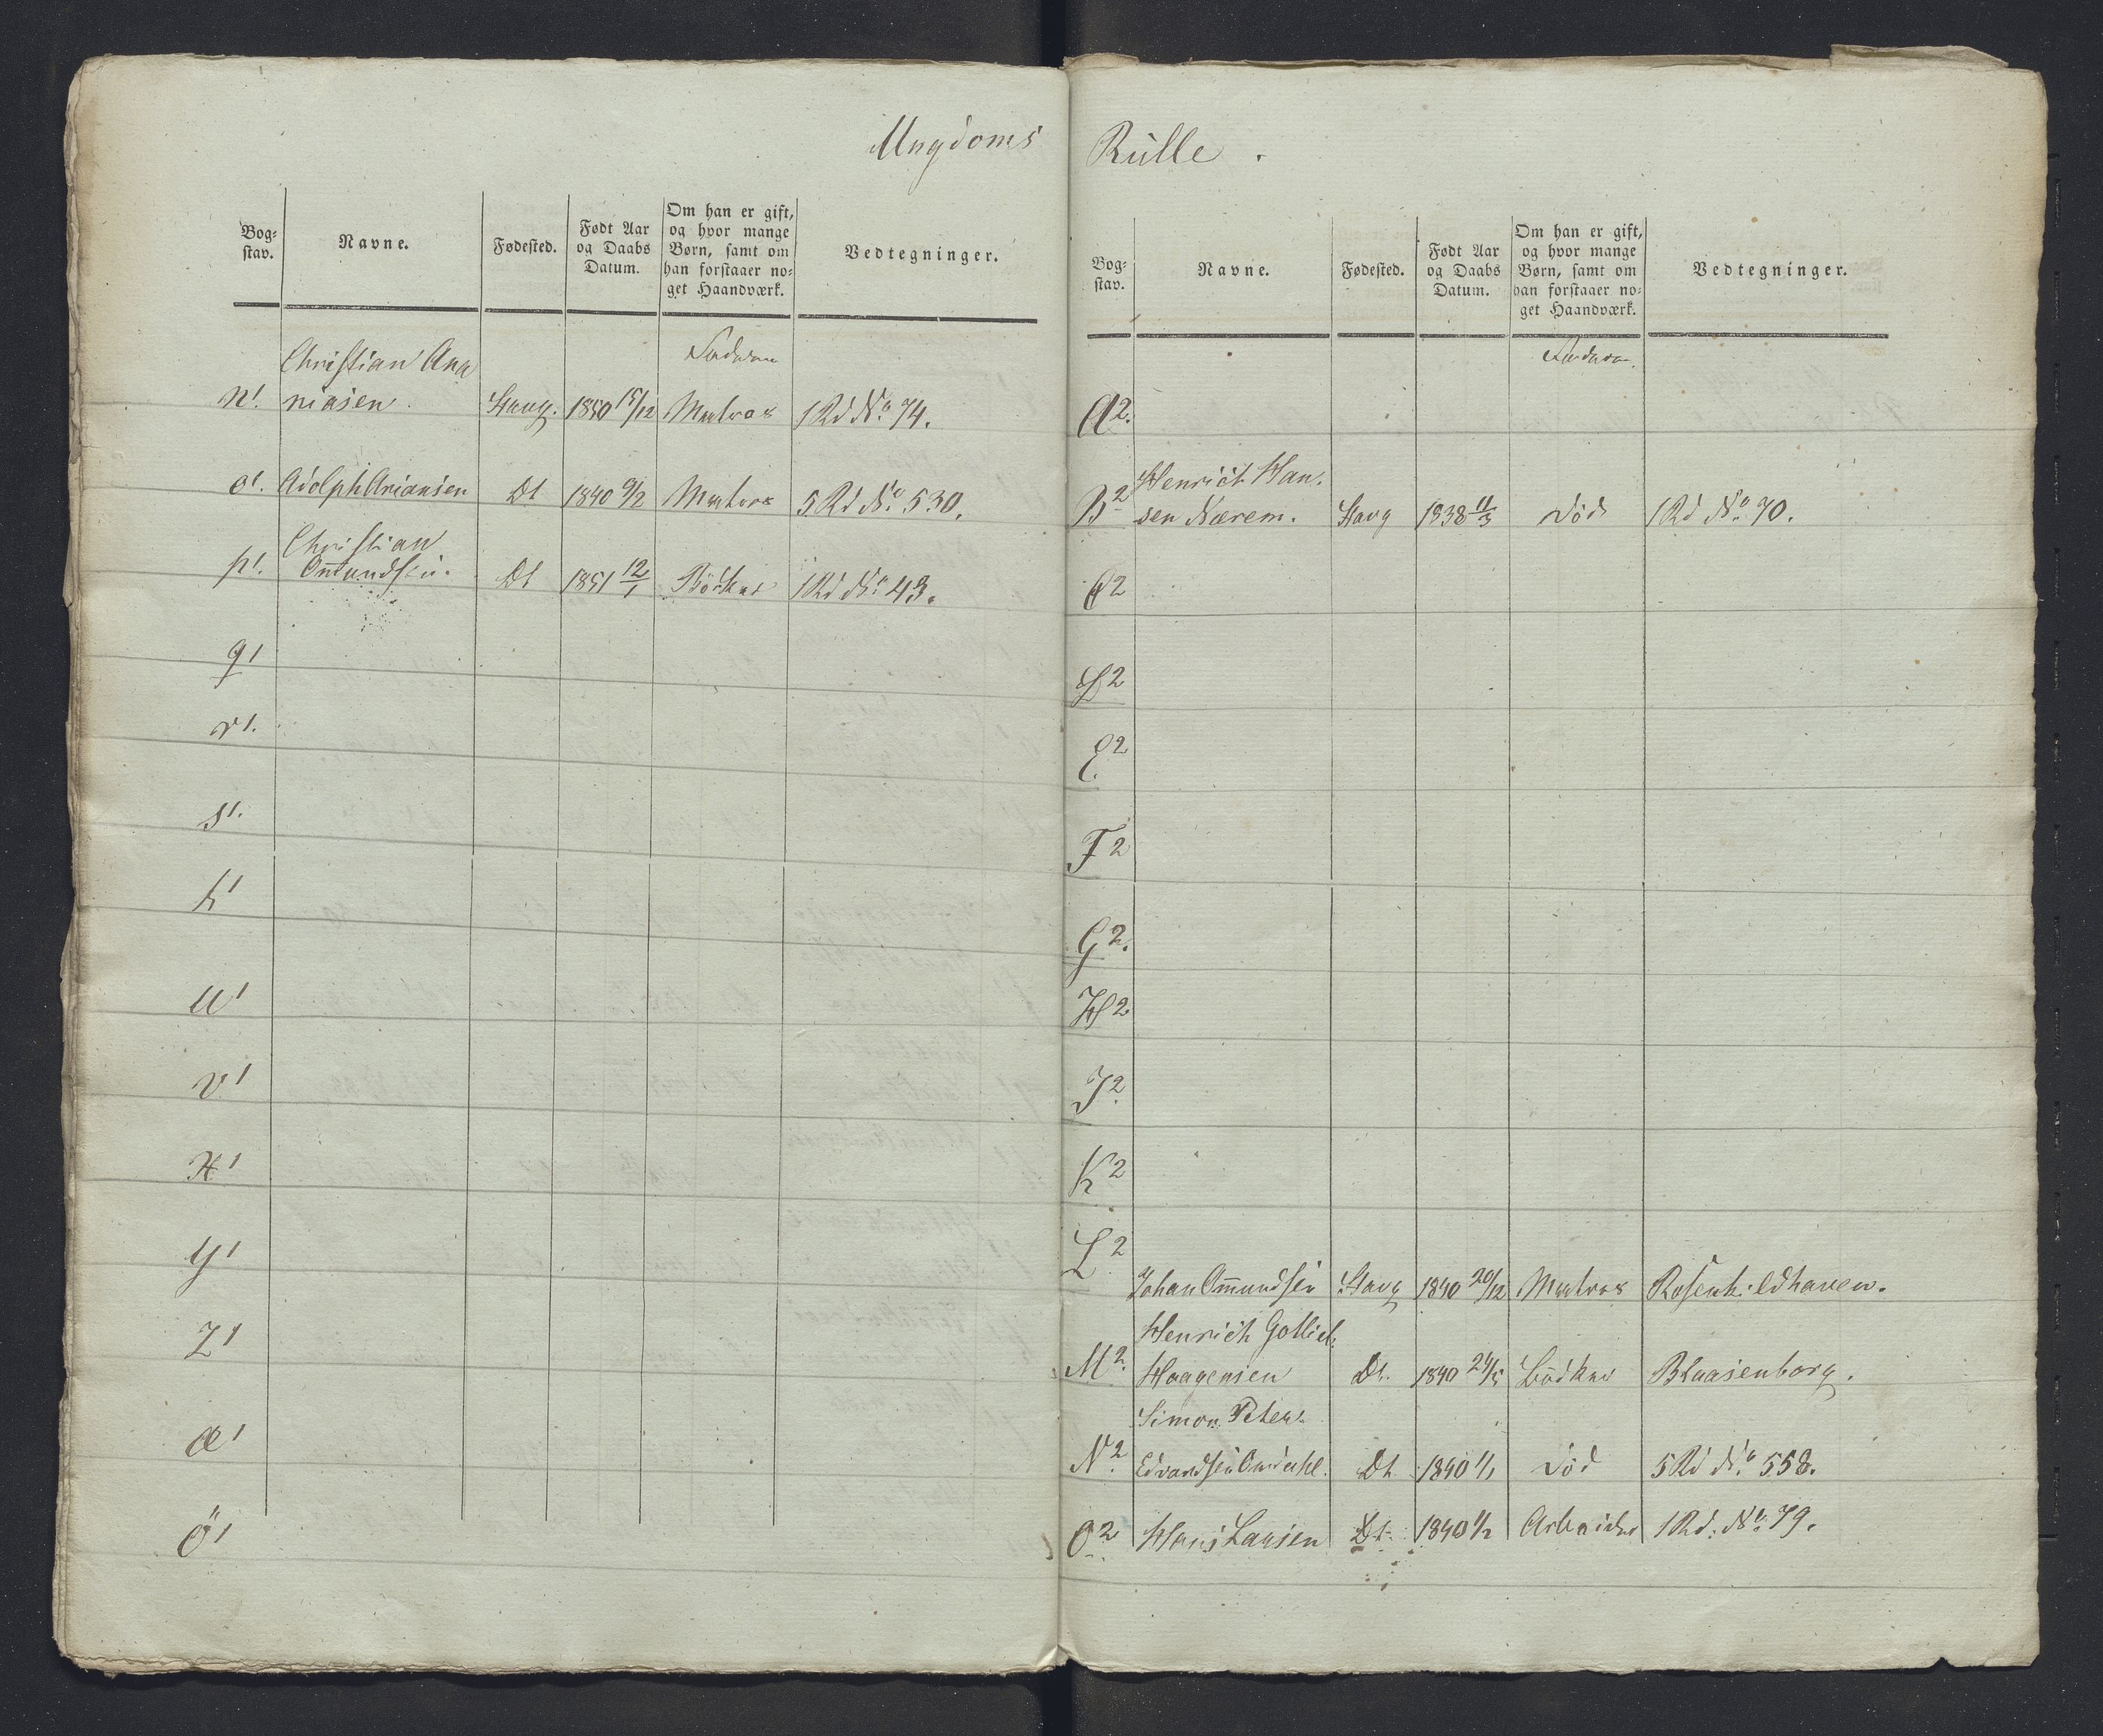 Ungdoms
Bog-
stav.
Navne.
Fødested.
Født Aar
og Daabs
Datum.
Om han er gift,
og hvor mange
Børn, samt om
han forstaaer no-
get Haandværk.
Vedtegninger.
Faderen
Christian Ana
n1. niasen. Stavg. 1850 15/12 Matros 1 Rd No. 74.
o1. Adolph Ariansen Dt 1840 9/2 Matros 5 Rd No. 530.
Christian
p1. Ommundsen. Dt 1851 12/1 Bödker 1 Rd No. 43.
q1
r1.
s1.
t1
u1
v1
x1
y1
z1
æ1
ö1
Rulle.
Bog-
stav.
Navne.
Fødested.
Født Aar
og Daabs
Datum.
Om han er gift,
og hvor mange
Børn, samt om
han forstaaer no-
get Haandværk.
Vedtegninger.
Faderen.
A2.
Henrich Han-
B2 sen Nærem. Stavg 1838 11/3 Död 1 Rd No. 70.
C2
D2
E2
F2
G2.
H2
I2
K2
L2
Johan Ommundsen Stavg 1840 20/12 Matros Rosenkildhaven.
Henrich Gotlieb
M2. Haagensen Dt. 1840 24/5 Bödker Blaasenborg.
Simon Peter
N2. Edvardsen Omdahl. Dt 1840 1/1 Död 5 Rd No. 558.
O2 Hans Larsen Dt. 1840 1/2 Arbeider 1 Rd. No. 79.